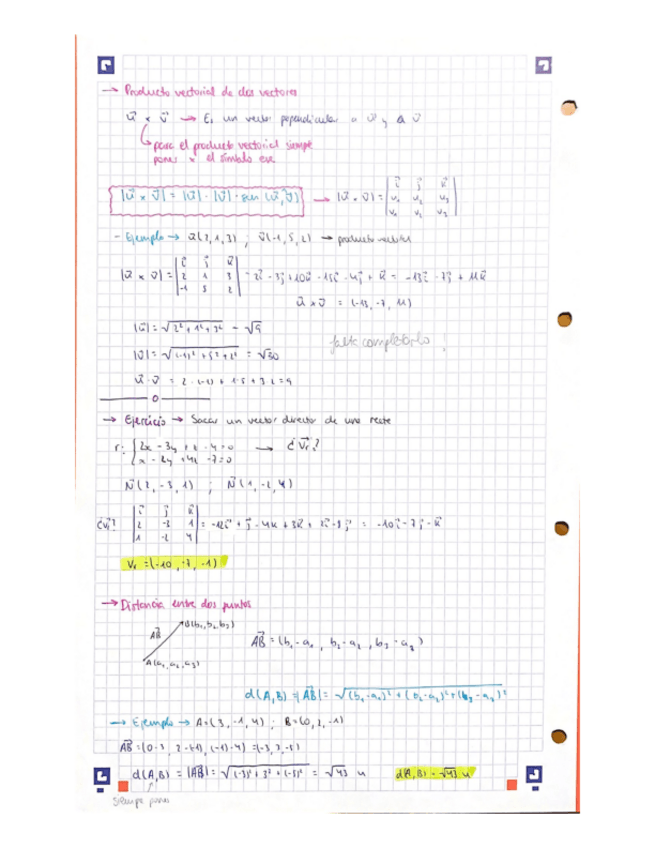 → Producto vectorial de dos vectores
u⃗ × v⃗ → Es un vector perpendicular a u⃗ y a v⃗
para el producto vectorial siempre
poner "x" el símbolo ese
|u⃗ × v⃗| = |u⃗| · |v⃗| · sen (u⃗, v⃗) → |u⃗ × v⃗| = | i⃗ j⃗ k⃗ |
- Ejemplo → u⃗(2, 1, 3) ; v⃗(-1, 5, 2) → producto vectorial
|u⃗ × v⃗| = | i⃗ j⃗ k⃗ | 2 1 3 | -1 5 2 | = 2i⃗ - 3j⃗ + 10k⃗ - 15i⃗ - 4j⃗ + k⃗ = -13i⃗ - 7j⃗ + 11k⃗
u⃗ × v⃗ = (-13, -7, 11)
|u⃗| = √2² + 1² + 3² = √9
|v⃗| = √(-1)² + 5² + 2² = √30
falta completarlo
u⃗ · v⃗ = 2 · (-1) + 1·5 + 3·2 = 9
→ Ejercicio → Sacar un vector director de una recta
r: { 2x - 3y + z - 4 = 0 → ¿V⃗r?
x - 2y + 4z - 7 = 0
N⃗(2, -3, 1) ; N⃗(1, -2, 4)
¿Vr? | i⃗ j⃗ k⃗ | 2 -3 1 | 1 -2 4 | = -12i⃗ + j⃗ - 4k + 3k⃗ + 2i⃗ - 8j⃗ = -10i⃗ - 7j⃗ - k⃗
Vr = (-10, -7, -1)
→ Distancia entre dos puntos
B(b₁, b₂, b₃)
AB⃗
AB⃗ = (b₁ - a₁, b₂ - a₂, b₃ - a₃)
A(a₁, a₂, a₃)
d(A,B) = |AB⃗| = √(b₁-a₁)² + (b₂-a₂)² + (b₃-a₃)²
→ Ejemplo → A=(3, -1, 4) ; B=(0, 2, -1)
AB⃗ = (0-3, 2-(-1), (-1)-4) = (-3, 3, -5)
d(A,B) = |AB⃗| = √(-3)² + 3² + (-5)² = √43 u
d(A,B) = √43 u
siempre poner